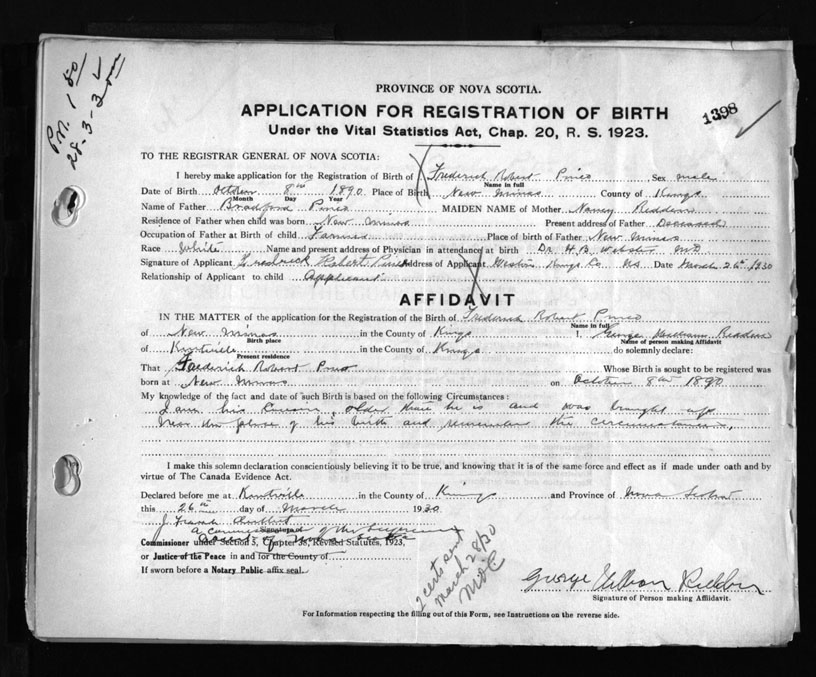 Pd. 1.50
28-3-3
PROVINCE OF NOVA SCOTIA.
1398
APPLICATION FOR REGISTRATION OF BIRTH
Under the Vital Statistics Act, Chap. 20, R. S. 1923.
TO THE REGISTRAR GENERAL OF NOVA SCOTIA:
I hereby make application for the Registration of Birth of Frederick Robert Pineo Sex male
Name in full
Date of Birth October 8th 1890 Place of Birth New Minas County of Kings
Month Day Year
Name of Father Bradford Pineo MAIDEN NAME of Mother Nancy Redden
Residence of Father when child was born New Minas Present address of Father Deceased
Occupation of Father at Birth of child Farmer Place of birth of Father New Minas
Race White Name and present address of Physician in attendance at birth Dr. H. B. Webster MD
Signature of Applicant Frederick Robert Pineo Address of Applicant Weston Kings Co NS Date March 26th 1930
Relationship of Applicant to child Applicant
AFFIDAVIT
IN THE MATTER of the application for the Registration of the Birth of Frederick Robert Pineo
Name in full
of New Minas in the County of Kings I, George William Redden
Birth place Name of person making Affidavit
of Kentville in the County of Kings do solemnly declare:
Present residence
That Frederick Robert Pineo Whose Birth is sought to be registered was
born at New Minas on October 8th 1890
My knowledge of the fact and date of such Birth is based on the following Circumstances:
I am his cousin, older than he is and was brought up
near the place of his birth and remember the circumstances.
I make this solemn declaration conscientiously believing it to be true, and knowing that it is of the same force and effect as if made under oath and by
virtue of The Canada Evidence Act.
Declared before me at Kentville in the County of Kings and Province of Nova Scotia
this 26th day of March 1930
J. Frank
Signature
A Commissioner of the Supreme
Court of Nova Scotia
Commissioner under Section 5, Chapter 38, Revised Statutes, 1923,
or Justice of the Peace in and for the County of
If sworn before a Notary Public affix seal.
2 certs sent
March 28/30
George William Redden
Signature of Person making Affidavit.
For Information respecting the filling out of this Form, see Instructions on the reverse side.